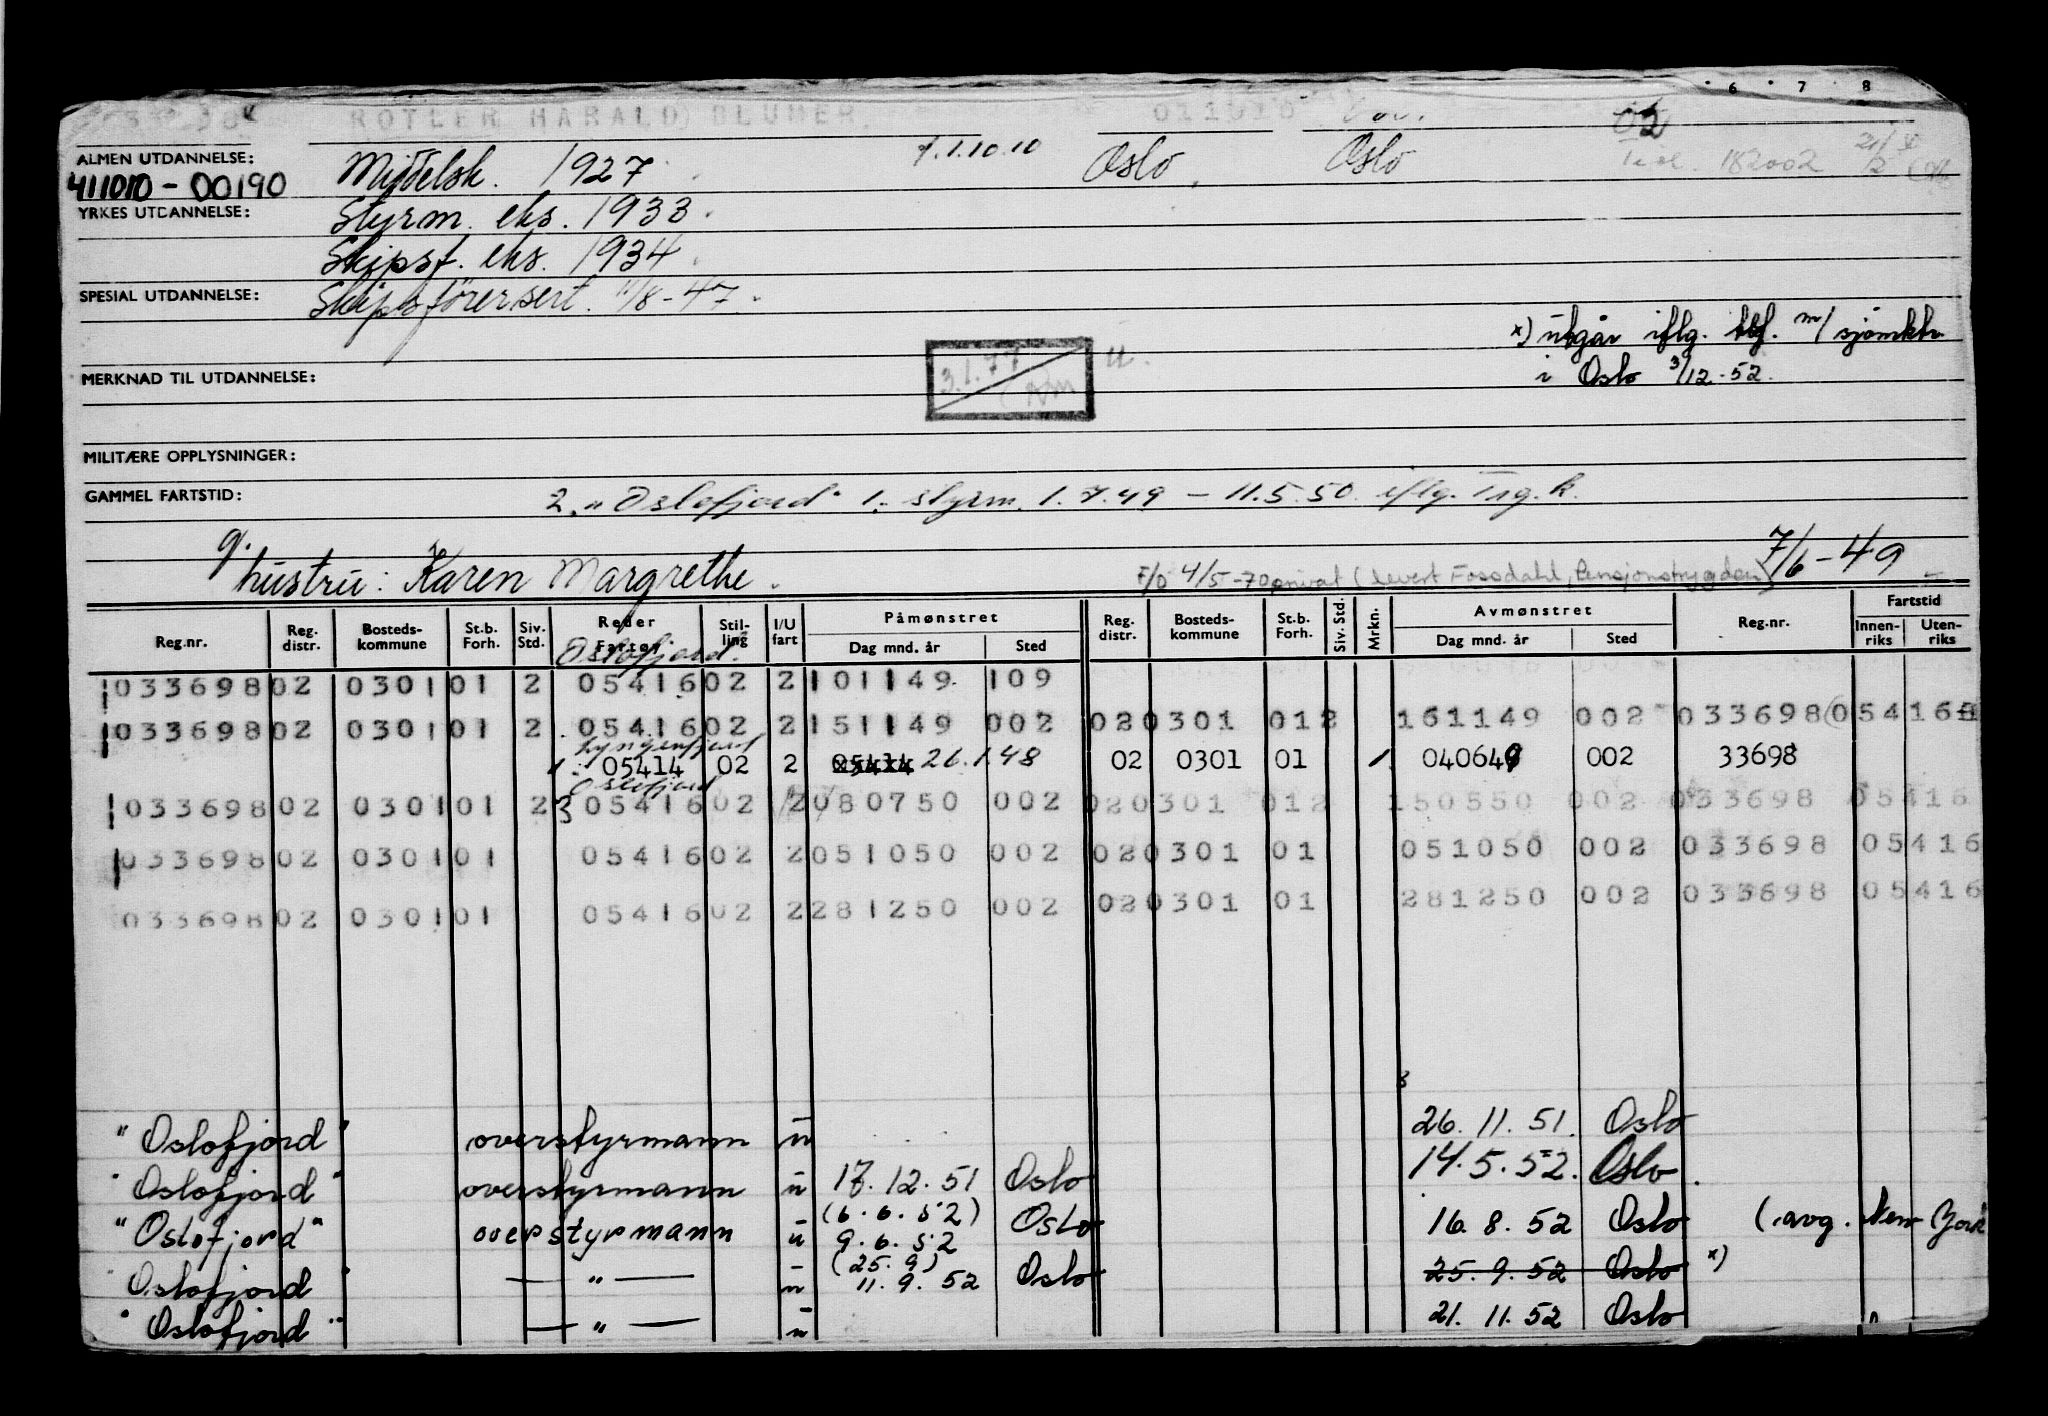 6 7 8
ROTLER HARALD BLUHER. 011010 02
ALMEN UTDANNELSE: Middelsk. 1927. f. 1.10.10 Oslo, Oslo 182002
411010-00190
YRKES UTDANNELSE: Styrm. eks. 1933.
Skipsf. eks. 1934.
SPESIAL UTDANNELSE: Skipsförersert. 11/8-47.
x) utgår iflg. tlf. m/ sjömktr.
i Oslo 3/12-52.
MERKNAD TIL UTDANNELSE: 3.1.77 u.
MILITÆRE OPPLYSNINGER:
GAMMEL FARTSTID: 2. "Oslofjord" 1. styrm. 1.7.49 - 11.5.50. iflg. Trg.k.
g.
hustru: Karen Margrethe. F/O 4/5-70 privat (levert Fossdahl, Pensjonstrygden) 7/6-49
Reg.nr. Reg. distr. Bosteds-kommune St.b. Forh. Siv. Std. Reder Fartøy Stil-ling I/U fart Påmønstret Dag mnd. år Sted Reg. distr. Bosteds-kommune St.b. Forh. Siv. Std. Mrkn. Avmønstret Dag mnd. år Sted Reg.nr. Fartstid Innen-riks Uten-riks
Oslofjord.
033698 02 0301 01 2 05416 02 2 101149 109
033698 02 0301 01 2 05416 02 2 151149 002 02 0301 01 2 161149 002 033698 05416
Lyngenfjord
05414 02 2 26.1.48 02 0301 01 1 040649 002 33698
Oslofjord
033698 02 0301 01 2 3 05416 02 2 080750 002 02 0301 01 2 150550 002 033698 05416
033698 02 0301 01 05416 02 2 051050 002 02 0301 01 051050 002 033698 05416
033698 02 0301 01 05416 02 2 281250 002 02 0301 01 281250 002 033698 05416
"Oslofjord" overstyrmann u 26.11.51. Oslo
"Oslofjord" overstyrmann u 17.12.51 Oslo 14.5.52. Oslo.
"Oslofjord" overstyrmann u (6.6.52) 9.6.52 Oslo 16.8.52 Oslo (avg. New York
"Oslofjord" — " — u (25.9) 11.9.52 Oslo 25.9.52 Oslo x)
"Oslofjord" — " — u 21.11.52 Oslo